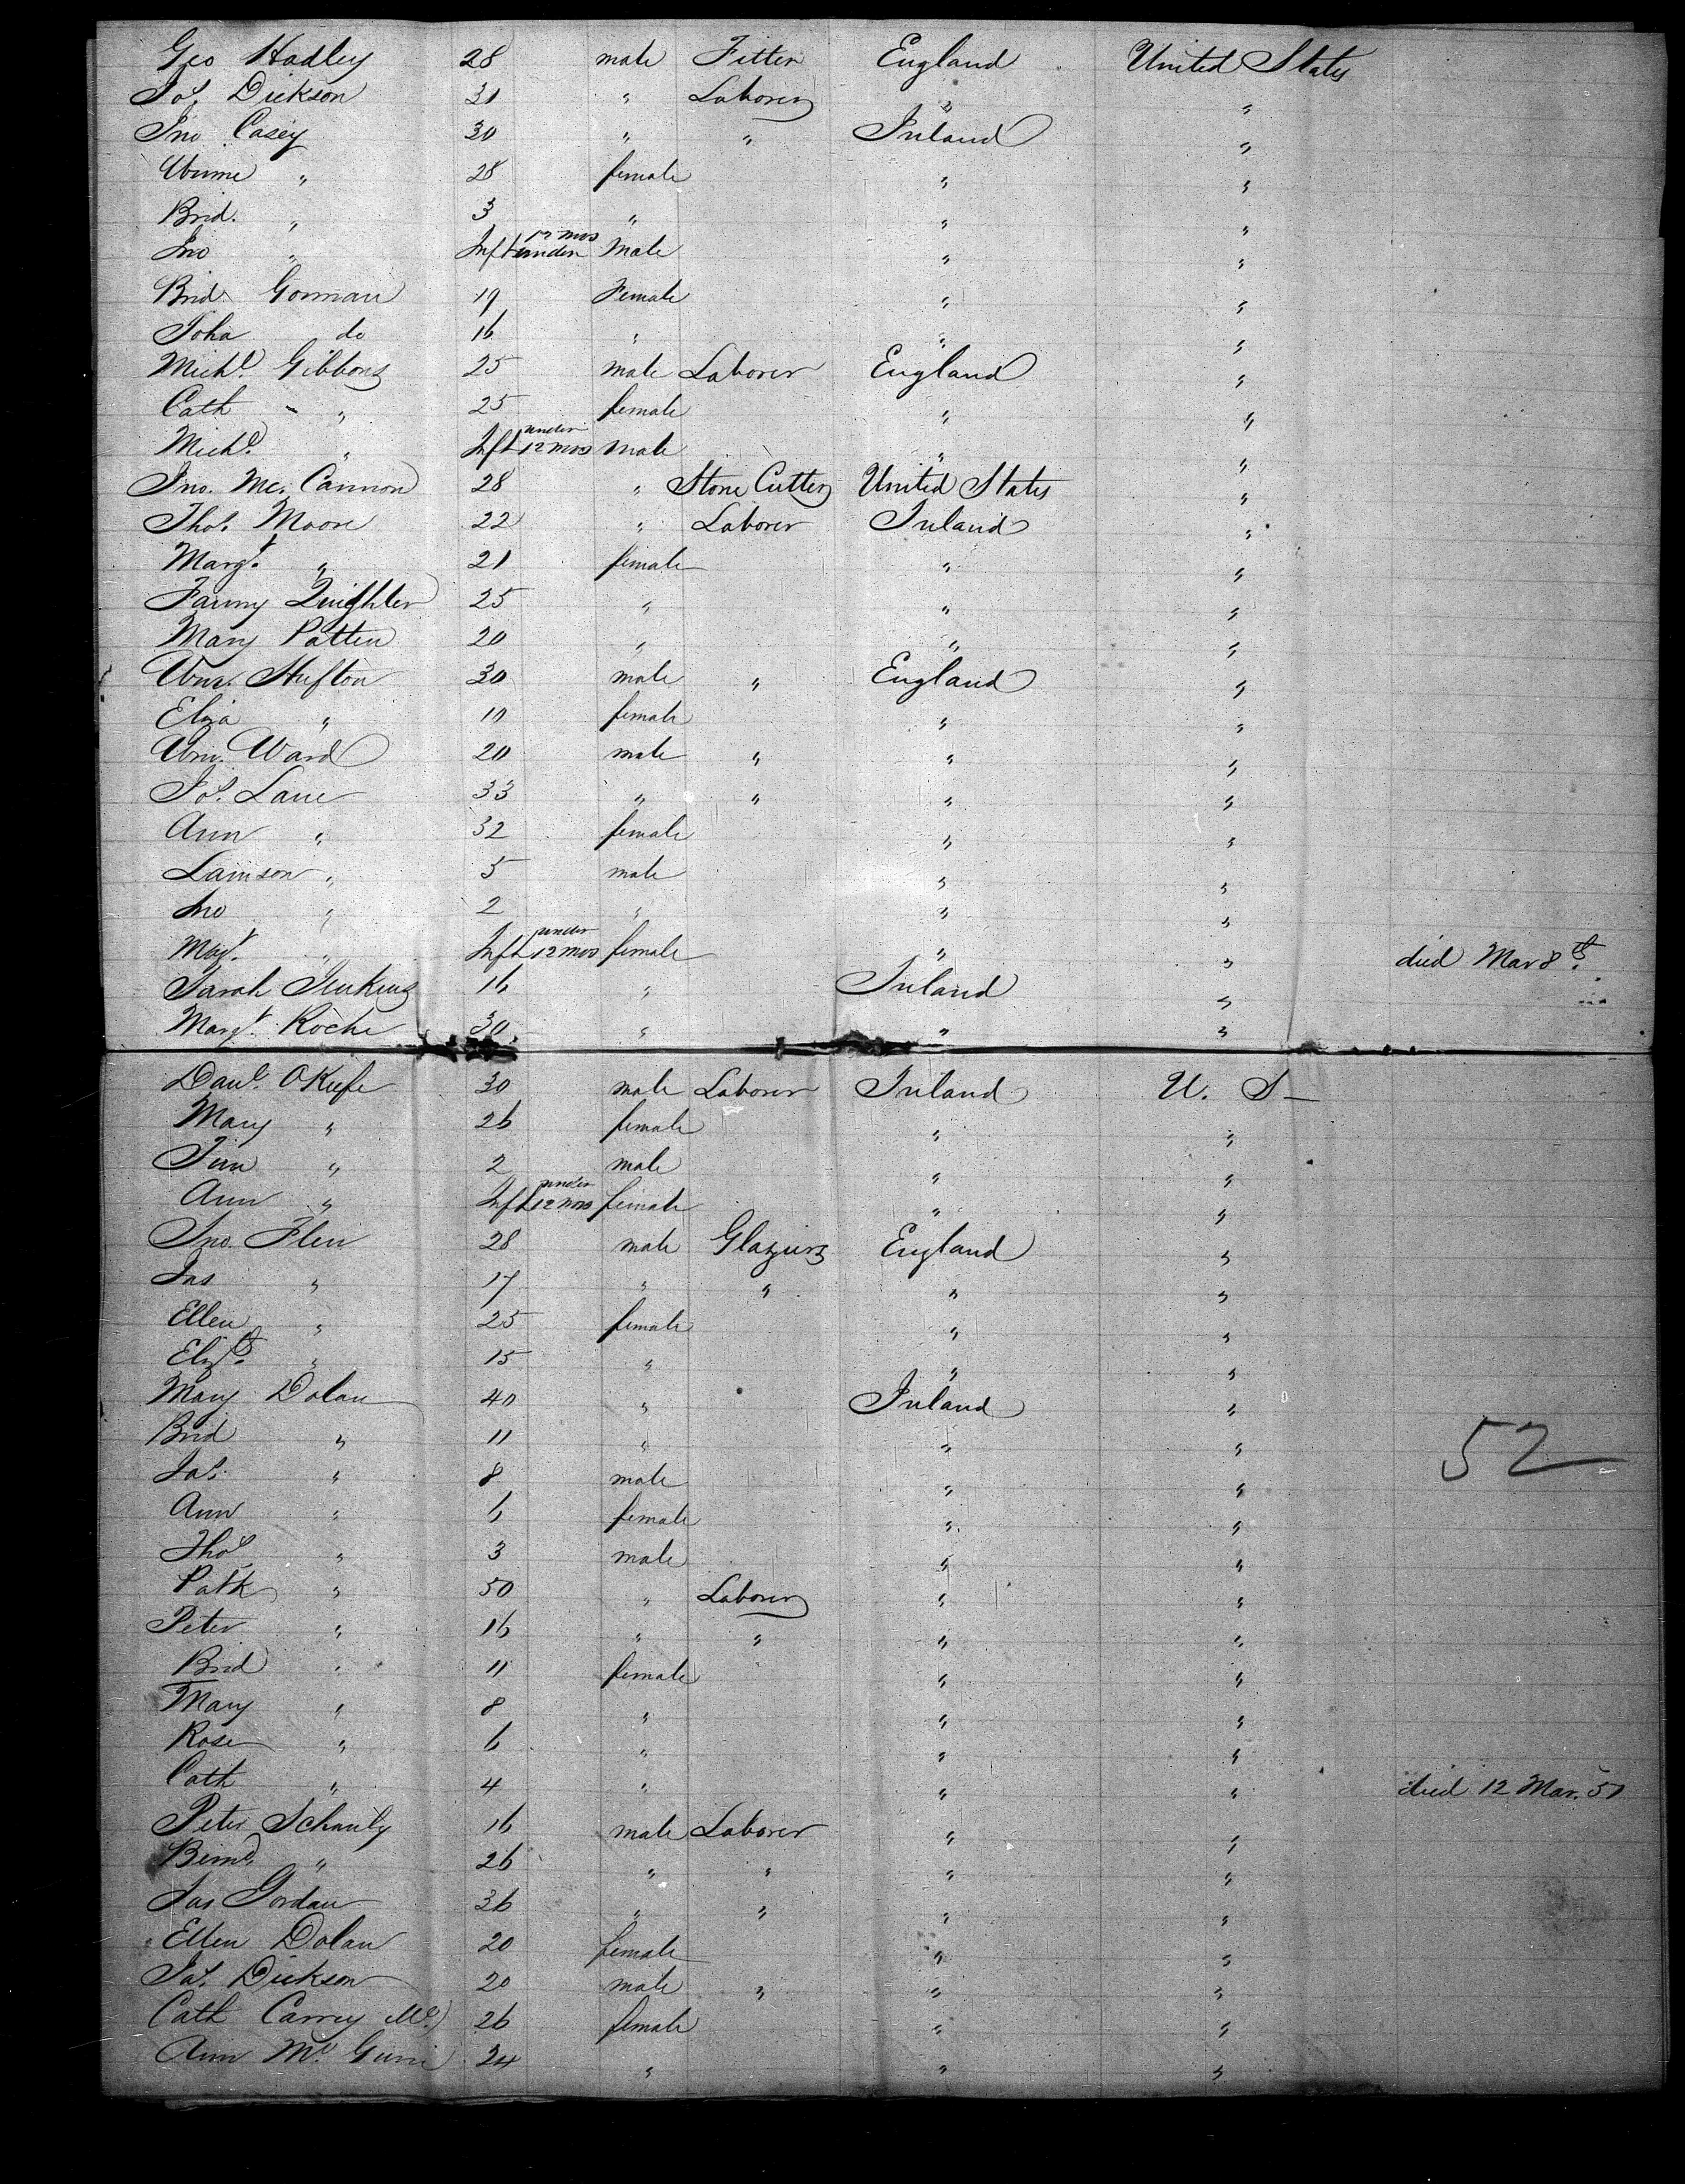 Geo Hadley 28 male Fitter England United States
Jas. Dickson 31 " Laborer " "
Jno Casey 30 " " Ireland "
" 28 female " "
Brid. " 3 " " "
Jno " Inft under 12 mos Male " "
Brid Gorman 19 Female " "
Joha do 16 " " "
Michl. Gibbons 25 male Laborer England "
Cath " 25 female " "
Michl. " Inft under 12 mos male " "
Jno. Mc. Cannon 28 " Stone Cutter United States "
Thos. Moore 22 " Laborer Ireland "
Margt. " 21 female " "
Fanny 25 " " "
Mary Patten 20 " " "
Wm. Hufton 30 male " England "
Eliza " 10 female " "
Wm. Ward 20 male " " "
Jos. Lane 33 " " " "
Ann " 32 female " "
" 5 male " "
Jno " 2 " " "
Magt. " Inft under 12 mos female " " died Mar 8th.
Sarah Jenkins 16 " Ireland "
Margt. Roche 30 " " "
Danl. OKeefe 30 male Laborer Ireland U. S -
Mary " 26 female " "
Tim " 2 male " "
Ann " Inft under 12 mos female " "
Jno. Flen 28 male Glaziers England "
Jas " 17 " " " "
Ellen " 25 female " "
Elizth. " 15 " " "
Mary Dolan 40 " Ireland "
Brid " 11 " " "
Jas. " 8 male " "
Ann " 6 female " "
Thos " 3 male " "
52
Patk " 50 " Laborer " "
Peter " 16 " " " "
Brid " 11 female " "
Mary " 8 " " "
Rose " 6 " " "
Cath " 4 " " " died 12 Mar. 51
Peter 16 male Laborer " "
" 26 " " " "
Jas Jordan 36 " " " "
Ellen Dolan 20 female " "
Jas. Dickson 20 male " " "
Cath Carrey Mc.) 26 female " "
Ann Mc. 24 " " "